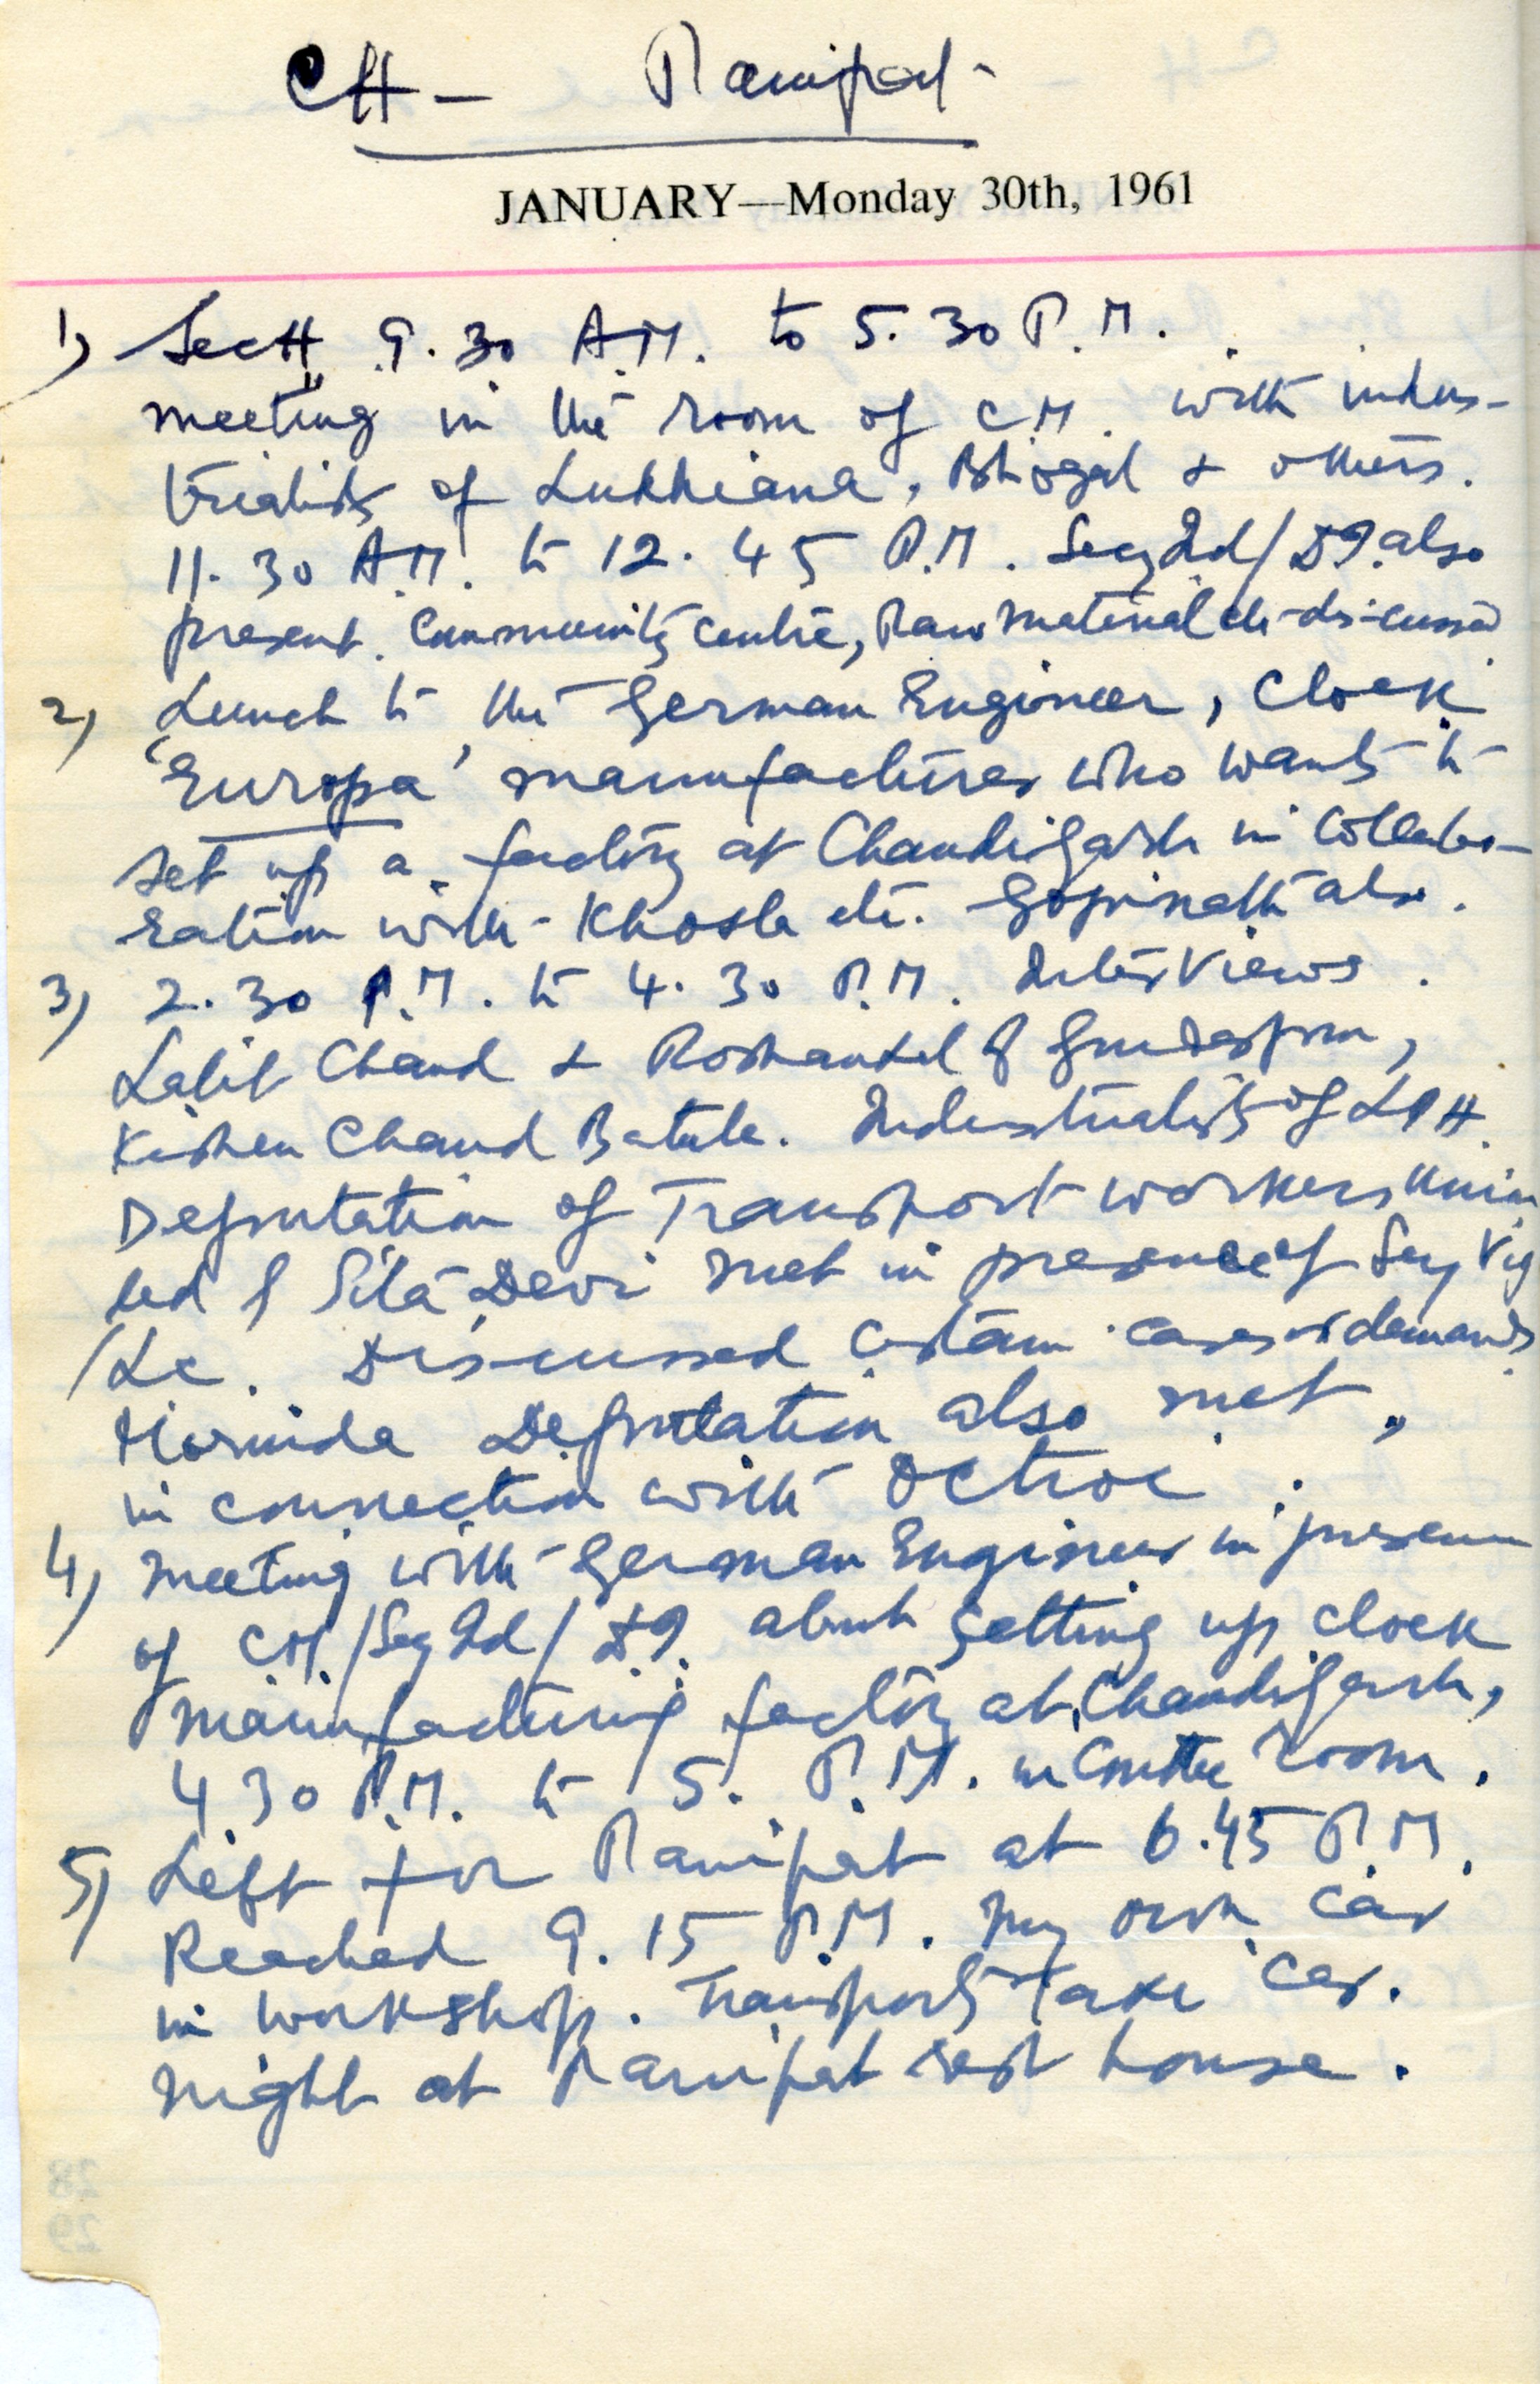 CH - Panipat -
JANUARY—Monday 30th, 1961
1) Sectt 9.30 A.M. to 5.30 P.M.
meeting in the room of C.M. with indus-
trialists of Ludhiana, Bhogal & others.
11.30 A.M. to 12.45 P.M. Secy Id/DI. also
present. Community centre, Raw material etc discussed
2) Lunch to the German Engineer, Clock
'Europa' manufacturer who wants to
set up a factory at Chandigarh in Collabo-
ration with Khosla etc. Gopinath also.
3) 2.30 P.M. to 4.30 P.M. Interviews.
Lalit Chand & Roshan Lal of Gurdaspur,
Kishen Chand Batala. Industrialists of LDH.
Deputation of Transport workers Union
led by Sita Devi met in presence of Secy Vig
/LC. Discussed certain cases & demands
Morinda Deputation also met,
in connection with Octroi.
4) Meeting with German Engineer in presence
of CM./Secy Id/DI. about setting up clock
manufacturing factory at Chandigarh,
4.30 P.M. to 5. P.M. in Cmttee room.
5) Left for Panipat at 6.45 P.M.
Reached 9.15 P.M. My own car
in workshop. Transport's car.
Night at Panipat rest house.